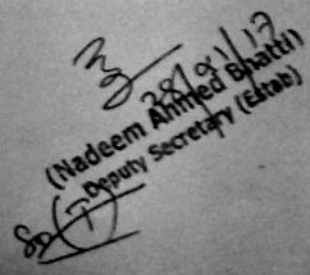 28/01/17
(Nadeem Ahmed Bhatti)
Deputy Secretary (Estab)